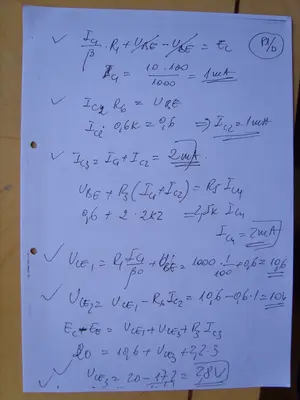 ✓ I_C1/β · R_1 + U_BE − U_BE = E_C
I_C1 = 10·100/1000 = 1mA
✓ I_C2 R_6 = U_BE
I_C2 · 0,6K = 0,6 ⇒ I_C2 = 1mA
✓ I_C3 = I_C1 + I_C2 = 2mA.
U_BE + R_3 (I_C1 + I_C2) = R_5 I_C4
0,6 + 2·2k2 = 2,5k I_C4
I_C4 = 2mA
✓ U_CE1 = R_1 I_C1/β + U_BE = 1000·1/100 + 0,6 = 10,6
✓ U_CE2 = U_CE1 − R_6 I_C2 = 10,6 − 0,6·1 = 10V
E_C + E_E = U_CE1 + U_CE3 + R_3 I_C3
20 = 10,6 + U_CE3 + 2,2·3
✓ U_CE3 = 20 − 17,2 = 2,8V